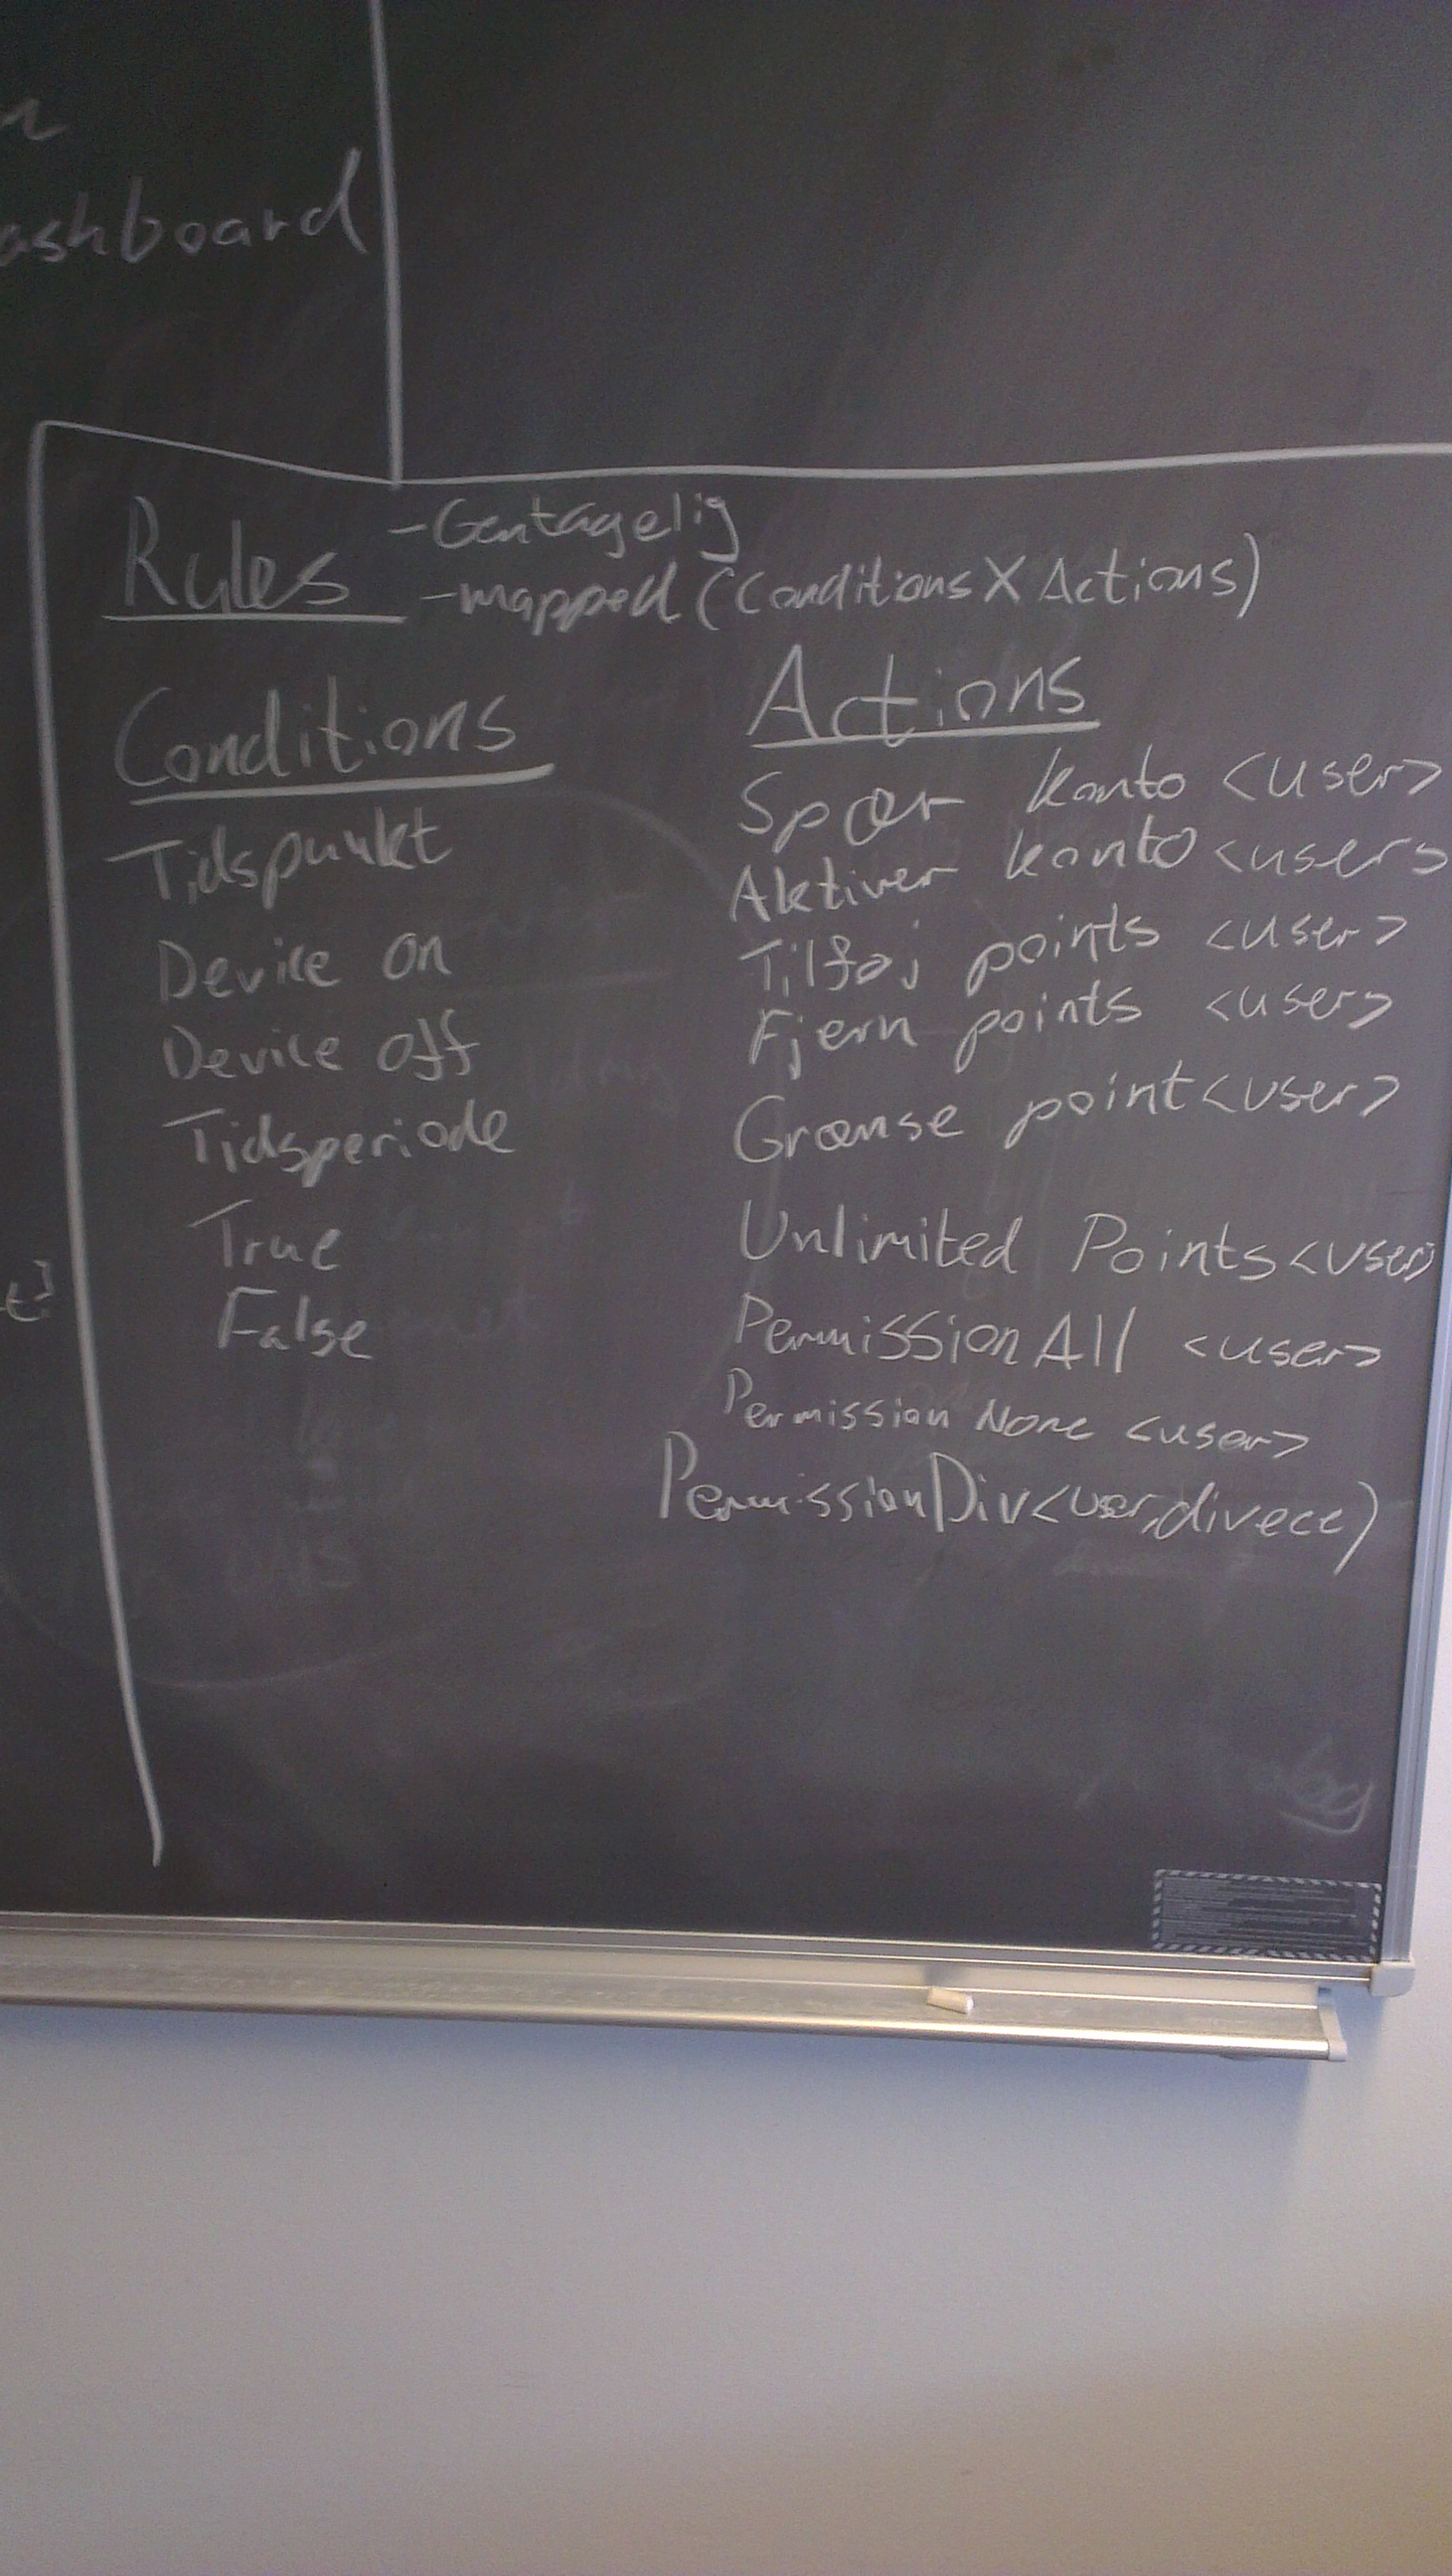 ashboard
Rules
-Gentagelig
-mapped (Conditions X Actions)
Conditions
Tidspunkt
Device on
Device off
Tidsperiode
True
False
Actions
Spær konto <user>
Aktiver konto <user>
Tilføj points <user>
Fjern points <user>
Grænse point <user>
Unlimited Points <user>
Permission All <user>
Permission None <user>
PermissionDiv<user,divece)